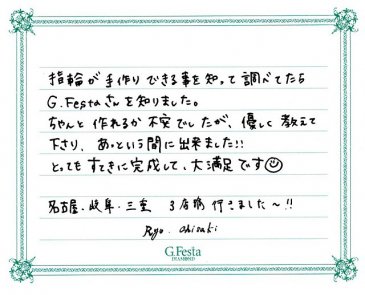 指輪が手作りできる事を知って調べてたら
G.Festaさんを知りました。
ちゃんと作れるか不安でしたが、優しく教えて
下さり、あっという間に出来ました!!
とってもすてきに完成して、大満足です☺
名古屋、岐阜、三重 3店舗行きました〜!!
Ryo. Ohisaki
G.Festa
DIAMOND